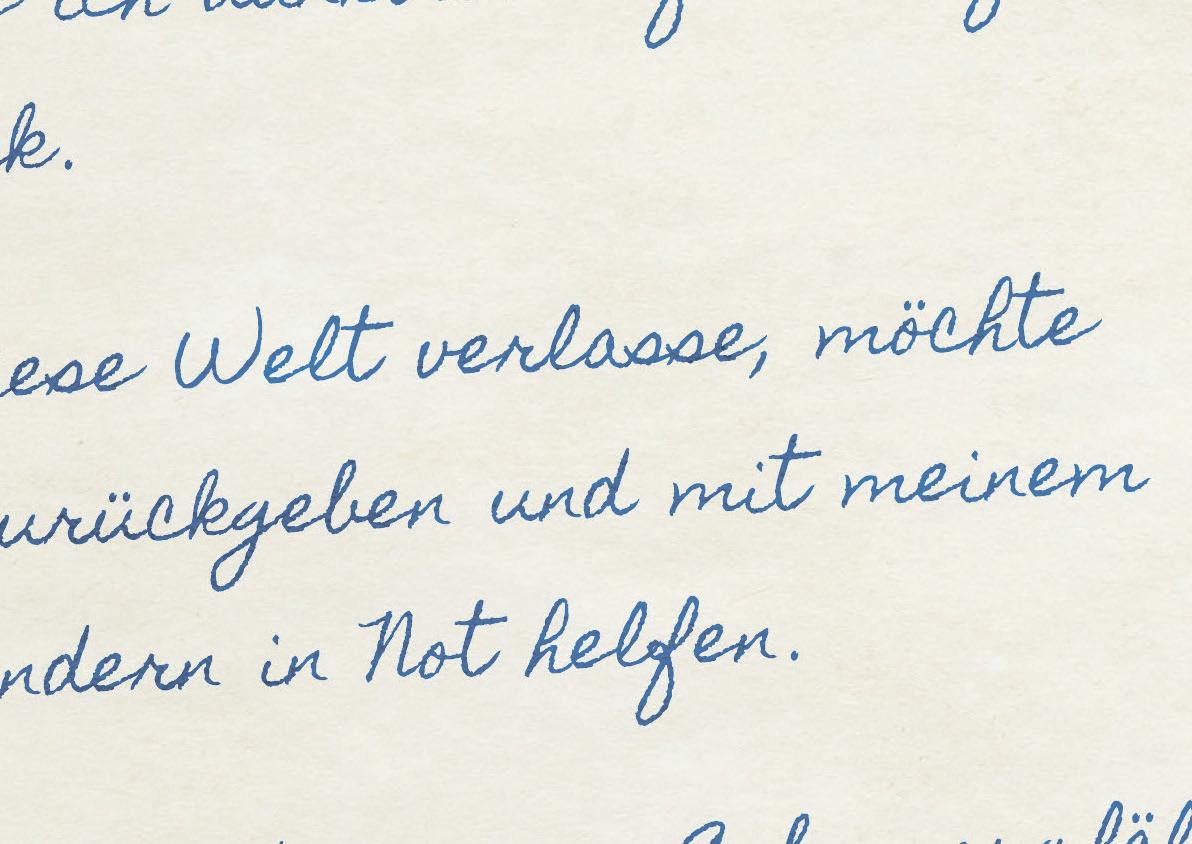 ich
k.
ese Welt verlasse, möchte
urückgeben und mit meinem
ndern in Not helfen.